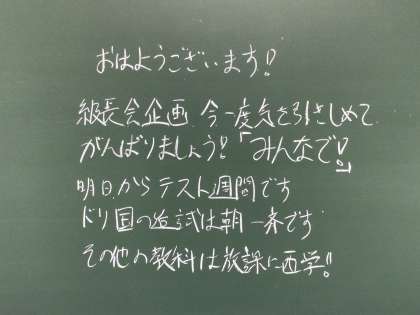 おはようございます!
級長会企画 今一度気を引きしめて
がんばりましょう!「みんなで!」
明日からテスト週間です
ドリ国の追試は朝一条です
その他の教科は放課に西学!!